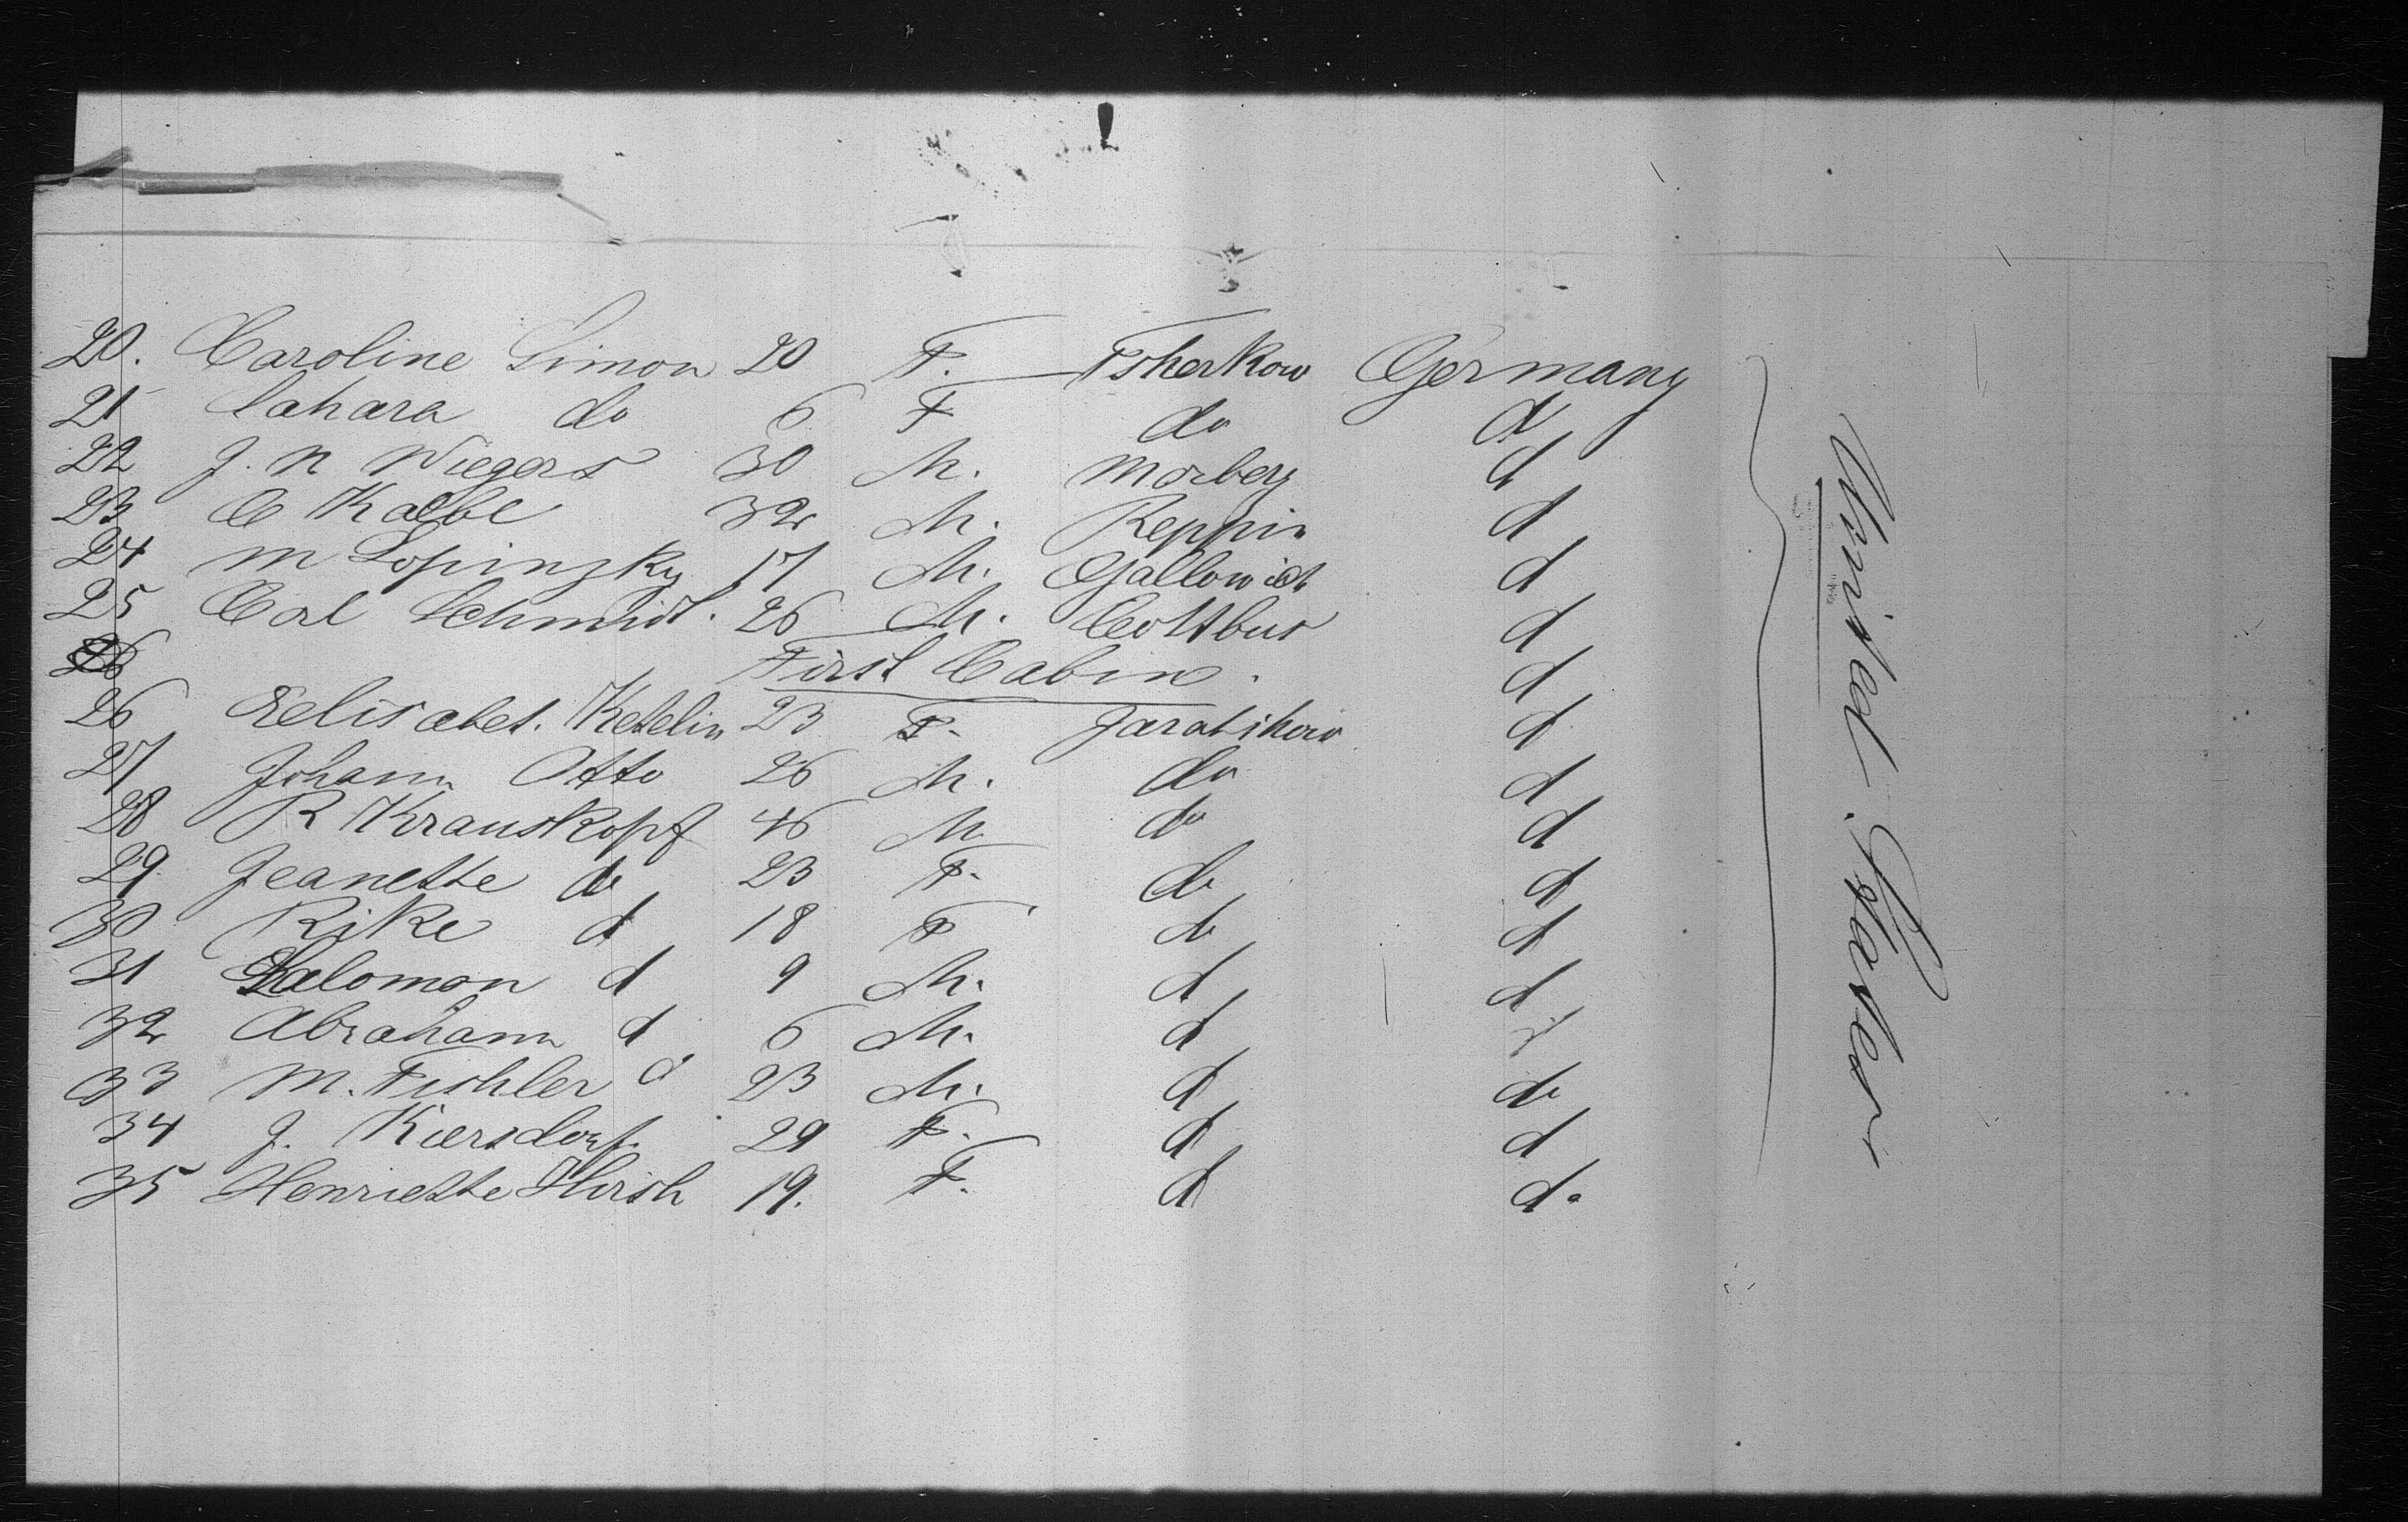 20. Caroline Simon 20 F. Tsherkow Germany
21 Sahara do 6 F do d
22 J. N Wiegers 30 M. Morberg d
23 C Kalbe 32 M. Reppin d
24 M Lopinzky 17 M. Gallowich d
25 Carl Schmidt. 26 M. Cottbus d
26 First Cabin. d
26 Eelisabet. Ketelin 23 F. d
27 Johann Otto 26 M. do d
28 R Krauskopf 46 M do d
29. Jeanette do 23 F. do d
30 Rike d 18 F do d
31 Salomon d 9 M. d d
32 Abraham d 6 M. d d
33 M. Fishler d 23 M. d do
34 J. Kiersdorf 29 F. d d
35 Henriette Hirsh 19. F. d do
United States